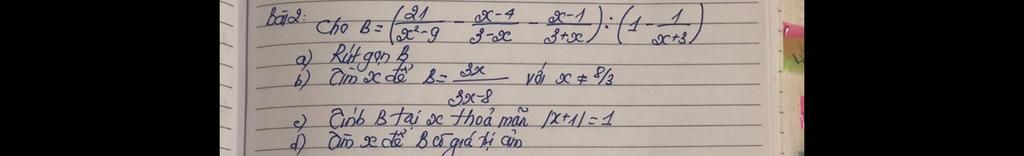 Bài 2: Cho B = (21/(x²-9) - (x-4)/(3-x) - (x-1)/(3+x)) : (1 - 1/(x+3))
a) Rút gọn B
b) Tìm x để B = 3x/(3x-8) với x ≠ 8/3
c) Tính B tại x thoả mãn |x+1| = 1
d) Tìm x để B có giá trị âm